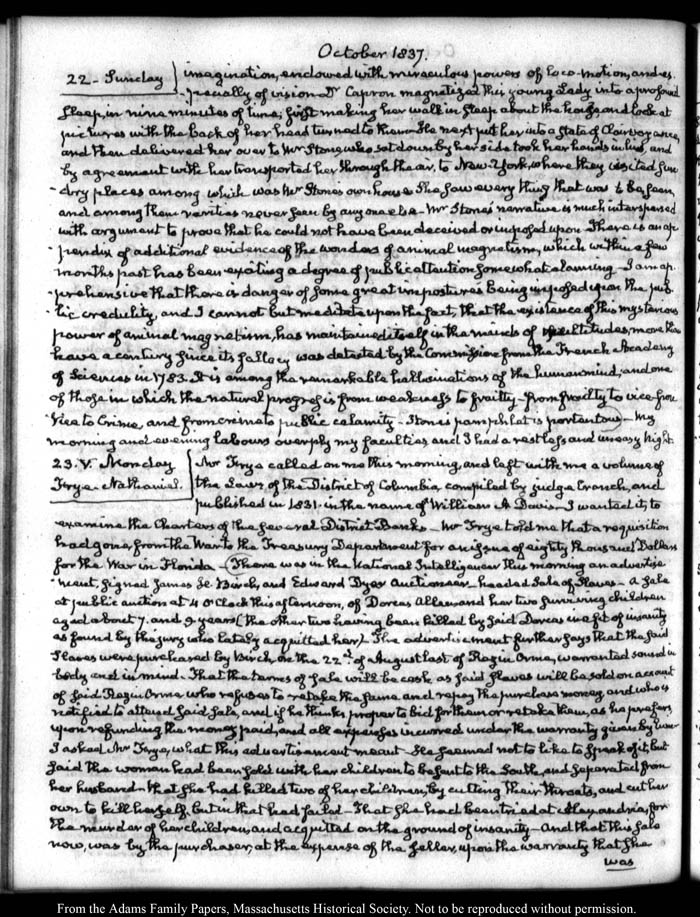 October 1837.
22 - Sunday
imagination, endowed with miraculous powers of loco-motion, and es-
-pecially of vision. Dr Capron magnetized this young Lady into a profound
sleep, in nine minutes of time; first making her walk in sleep about the house, and look at
pictures with the back of her head turned to them. He next put her into a state of Clairvoyance,
and then delivered her over to Mr Stone, who sat down by her side took her hands in his, and
by agreement with her transported her through the air, to New-York, where they visited sun-
-dry places among which was Mr Stone's own house. She saw every thing that was to be seen,
and among them rarities never seen by any one else - Mr Stone's narrative is much interspersed
with argument to prove that he could not have been deceived or imposed upon - There is an ap-
-pendix of additional evidence of the wonders of animal magnetism, which within a few
months past has been exciting a degree of public attention somewhat alarming - I am ap-
-prehensive that there is danger of some great impostures being imposed upon the pub-
-lic credulity, and I cannot but meditate upon the fact, that the existence of this mysterious
power of animal magnetism, has maintained itself in the minds of multitudes, more than
half a century since its fallacy was detected by the Commission from the French Academy
of Sciences in 1783. It is among the remarkable hallucinations of the human mind; and one
of those in which the natural progress is from weakness to frailty - from frailty to vice - from
Vice to Crime, and from crime to public calamity - Stone's pamphlet is portentous - My
morning and evening labours overply my faculties and I had a restless and uneasy Night.
23. V. Monday
Frye. Nathaniel.
Mr Frye called on me this morning, and left with me a volume of
the Laws of the District of Columbia compiled by judge Cranch, and
published in 1831. in the name of William A Davis - I wanted it, to
examine the Charters of the several District Banks - Mr Frye told me that a requisition
had gone from the War to the Treasury Department for an issue of eighty thousand Dollars
for the War in Florida - (There was in the National Intelligencer this morning an advertise-
-ment, signed James H. Birch, and Edward Dyer Auctioneer - headed Sale of Slaves - A sale
at public auction at 4 O'Clock this afternoon, of Dorcas Allen, and her two surviving children
aged about 7. and 9 years (the other two having been killed by said Dorcas in a fit of insanity
as found by the jury who lately acquitted her). The advertisement further says that the said
Slaves were purchased by Birch, on the 22d. of August last of Rezin Orme, warranted sound in
body and in mind. That the terms of sale will be cash, as said slaves will be sold on account
of said Rezin Orme who refuses to retake the same and repay the purchase money, and who is
notified to attend said sale, and if he thinks proper to bid for them, or retake them, as he prefers
upon refunding the money paid, and all expenses incurred under the warranty given by him
I asked Mr Frye, what this advertisement meant. He seemed not to like to speak of it, but
said the woman had been sold with her children to be sent to the South, and separated from
her husband - that she had killed two of her children, by cutting their throats, and cut her
own to kill herself, but in that had failed - That she had been tried at Alexandria, for
the murder of her children, and acquitted on the ground of insanity - And that this sale
now, was by the purchaser, at the expense of the seller, upon the warranty that she
was
From the Adams Family Papers, Massachusetts Historical Society. Not to be reproduced without permission.